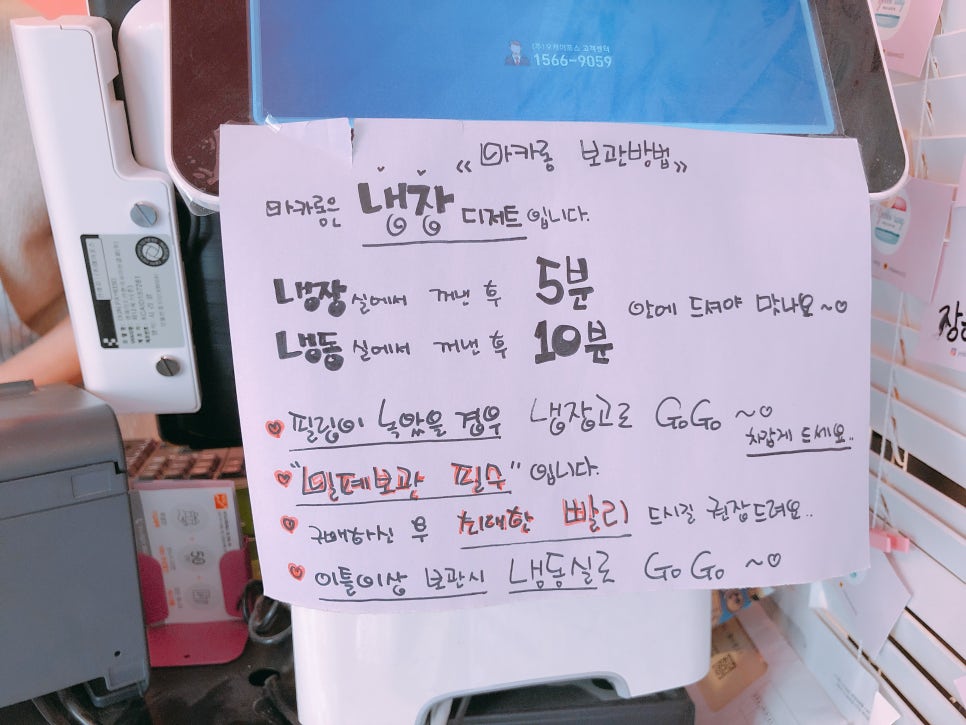 (주)아케이포스 고객센터
1566-9059
“마카롱 보관방법”
마카롱은 냉장 디저트입니다.
냉장실에서 꺼낸 후 5분
안에 드셔야 맛나요~♡
냉동실에서 꺼낸 후 10분
♥ 필링이 녹았을 경우 냉장고로 GoGo ~♡
차갑게 드세요..
♥ "밀폐보관 필수" 입니다.
♥ 구매하신 후 최대한 빨리 드시길 권장드려요..
♥ 이틀이상 보관시 냉동실로 GoGo ~♡
50